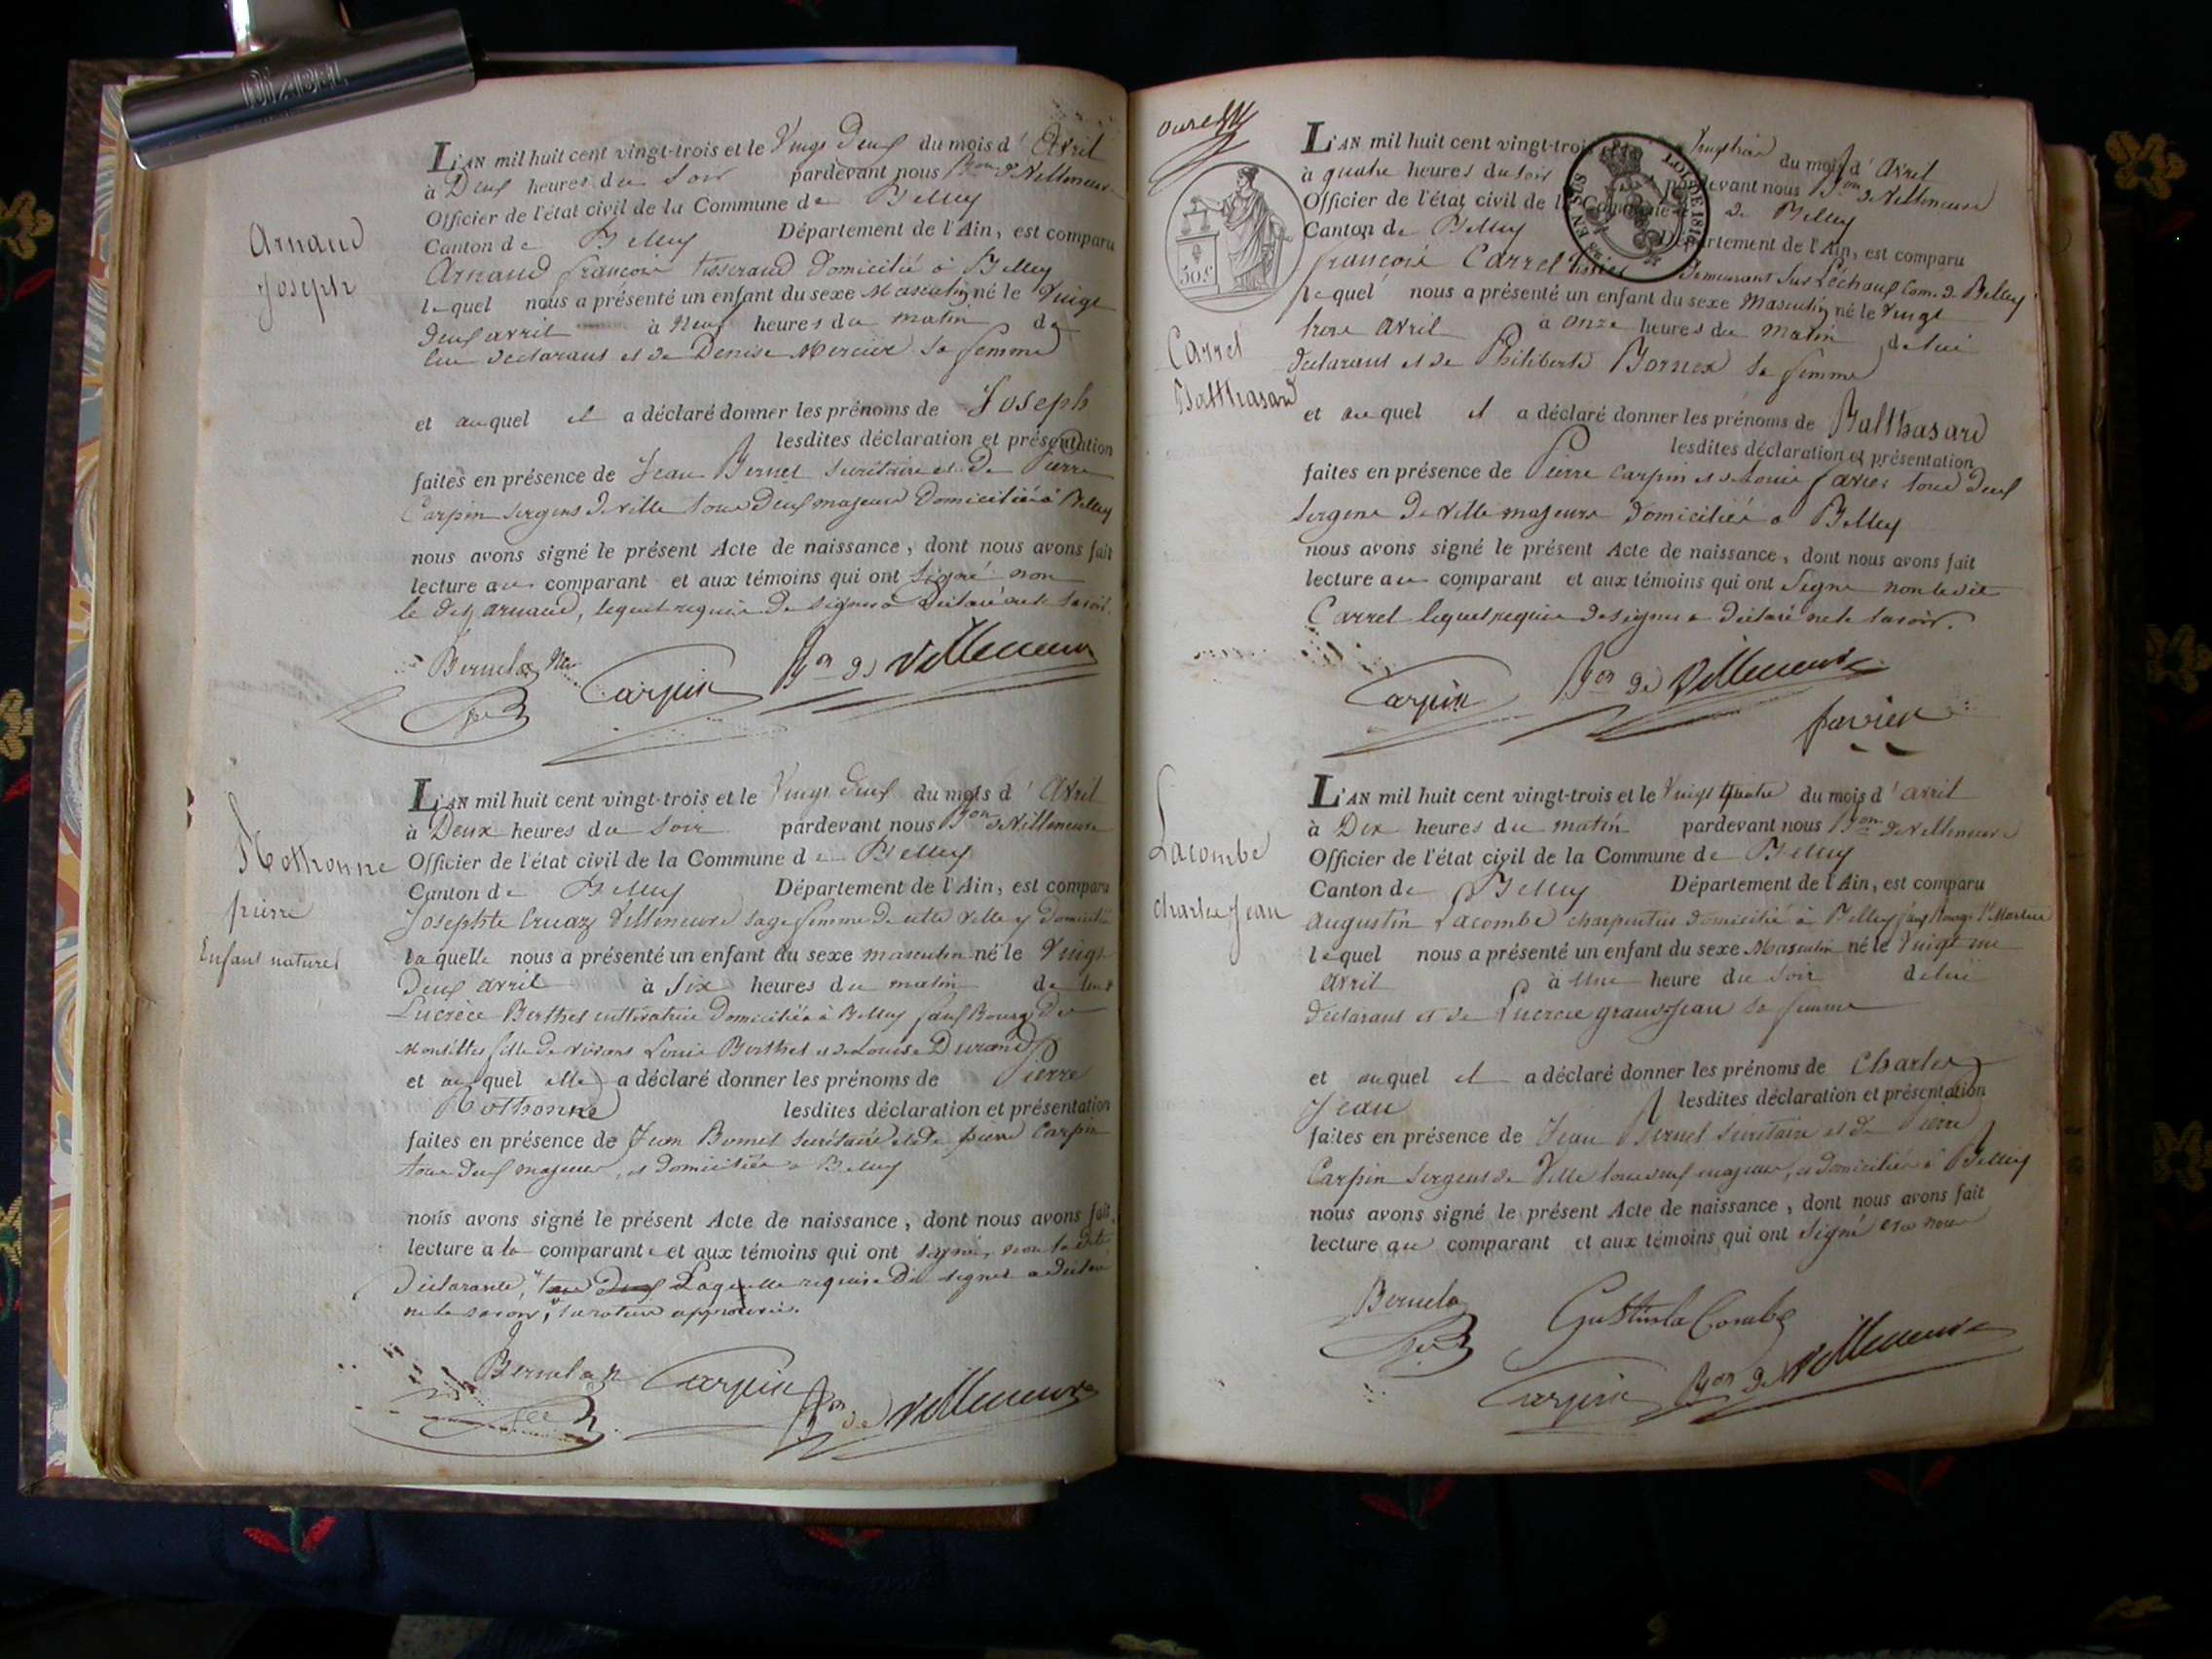 Arnaud
Joseph
L'AN mil huit cent vingt-trois et le Vingt Deux du mois d' Avril
à Deux heures du Soir pardevant nous Bon de Villeneuve
Officier de l'état civil de la Commune de Belley
Canton de Belley Département de l'Ain, est comparu
Arnaud françois tisserand Domicilié à Belley
lequel nous a présenté un enfant du sexe Masculin né le Vingt
deux avril à Neuf heures du matin de
lui déclarant et de Denise Mercier Sa femme
et auquel il a déclaré donner les prénoms de Joseph
lesdites déclaration et présentation
faites en présence de Jean Bernel Secrétaire et De Pierre
Carpin Sergens De ville tous Deux majeurs Domiciliés à Belley
nous avons signé le présent Acte de naissance, dont nous avons fait
lecture au comparant et aux témoins qui ont Signé non
le dit arnaud, lequel requis De Signer a Déclaré ne le Savoir.
Carpin Bon de Villeneuve
Mothonne
pierre
Enfant naturel
L'AN mil huit cent vingt-trois et le Vingt deux du mois d' Avril
à Deux heures du Soir pardevant nous Bon de Villeneuve
Officier de l'état civil de la Commune de Belley
Canton de Belley Département de l'Ain, est comparu
Josephte Cruaz Villeneuve Sage femme de cette Ville y domiciliée
laquelle nous a présenté un enfant du sexe masculin né le Vingt
Deux avril à Six heures du matin de
Lucrèce Berthet cultivatrice Domiciliée à Belley faux Bourg Des
fille De Louis Berthet et de Louise Durand
et auquel elle a déclaré donner les prénoms de Pierre
Mothonne lesdites déclaration et présentation
faites en présence de Jean Bernel Secrétaire et de pierre Carpin
tous Deux majeurs, et domiciliés à Belley
nous avons signé le présent Acte de naissance, dont nous avons fait
lecture a la comparante et aux témoins qui ont signé, non la dite
Déclarante, tous Deux Laquelle requise De signer a déclaré
ne le savoir, la rature approuvée.
Carpin Bon de Villeneuve
50c
LOI DE 1816
EN SUS
Carrel
Balthasard
L'AN mil huit cent vingt-trois Vingt trois du mois d' Avril
à quatre heures du soir pardevant nous Bon de Villeneuve
Officier de l'état civil de la Commune de Belley
Canton de Belley Département de l'Ain, est comparu
françois Carrel demeurant Sur Léchaux Com. de Belley
lequel nous a présenté un enfant du sexe Masculin né le Vingt
trois Avril à onze heures du Matin de lui
déclarant et de Philiberte Bornex Sa femme
et auquel il a déclaré donner les prénoms de Balthasard
lesdites déclaration et présentation
faites en présence de Pierre Carpin et Favier tous deux
Sergens De Ville majeurs domiciliés à Belley
nous avons signé le présent Acte de naissance, dont nous avons fait
lecture au comparant et aux témoins qui ont Signé non ledit
Carrel lequel requis De signer a déclaré ne le savoir.
Carpin Bon de Villeneuve
favier
Lacombe
Charles Jean
L'AN mil huit cent vingt-trois et le Vingt quatre du mois d' avril
à Dix heures du matin pardevant nous Bon de Villeneuve
Officier de l'état civil de la Commune de Belley
Canton de Belley Département de l'Ain, est comparu
Augustin Lacombe charpentier domicilié à Belley faux Bourg St Martin
lequel nous a présenté un enfant du sexe Masculin né le Vingt un
avril à Une heure du Soir de lui
déclarant et de Lucrèce grandjean sa femme
et auquel il a déclaré donner les prénoms de Charles
Jean lesdites déclaration et présentation
faites en présence de Jean Bernel Secrétaire et de Pierre
Carpin Sergens de Ville tous deux majeurs, et domiciliés à Belley
nous avons signé le présent Acte de naissance, dont nous avons fait
lecture au comparant et aux témoins qui ont Signé avec nous
Gustin la Combe
Carpin Bon de Villeneuve